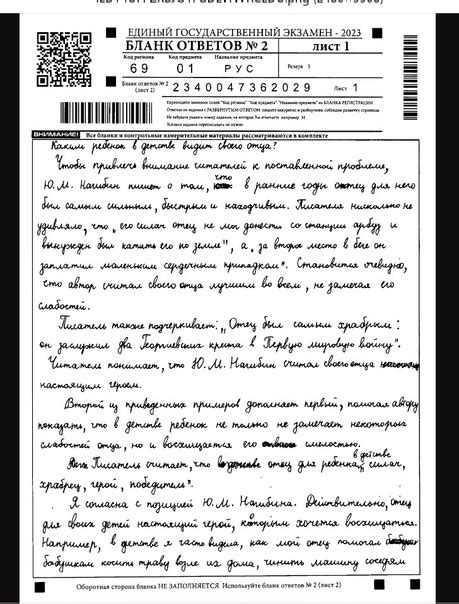 ЕДИНЫЙ ГОСУДАРСТВЕННЫЙ ЭКЗАМЕН - 2023
БЛАНК ОТВЕТОВ № 2 лист 1
Код региона Код предмета Название предмета
69 01 РУС Резерв - 5
Бланк ответов № 2 (лист 2) 2340047362029 Лист 1
Перепишите значения полей "Код региона" "Код предмета" "Название предмета" из БЛАНКА РЕГИСТРАЦИИ
Условия задания переписывать не нужно
ВНИМАНИЕ! Все бланки и контрольные измерительные материалы рассматриваются в комплекте
Каким ребенок в детстве видит своего отца?
Чтобы привлечь внимание читателей к поставленной проблеме,
Ю.М. Нагибин пишет о том, что в ранние годы отец для него
был самым сильным, быстрым и находчивым. Писателя нисколько не
удивляло, что „его силач отец не мог донести со станции арбуз и
вынужден был катить его по земле", а „за второе место в беге он
заплатил маленьким сердечным припадком". Становится очевидно,
что автор считал своего отца лучшим во всём, не замечая его
слабостей.
Писатель также подчеркивает: „Отец был самым храбрым:
он заслужил два Георгиевских креста в Первую мировую войну".
Читатель понимает, что Ю.М. Нагибин считал своего отца
настоящим героем.
Второй из приведенных примеров дополняет первый, помогая автору
показать, что в детстве ребенок не только не замечает некоторых
слабостей отца, но и восхищается его смелостью.
Писатель считает, что отец для ребенка в детстве „силач,
храбрец, герой, победитель".
Я согласна с позицией Ю.М. Нагибина. Действительно, отец
для своих детей настоящий герой, которым хочется восхищаться.
Например, в детстве я часто видела, как мой отец помогал
бабушкам косить траву возле их дома, чинить машину соседям
Оборотная сторона бланка НЕ ЗАПОЛНЯЕТСЯ Используйте бланк ответов № 2 (лист 2)